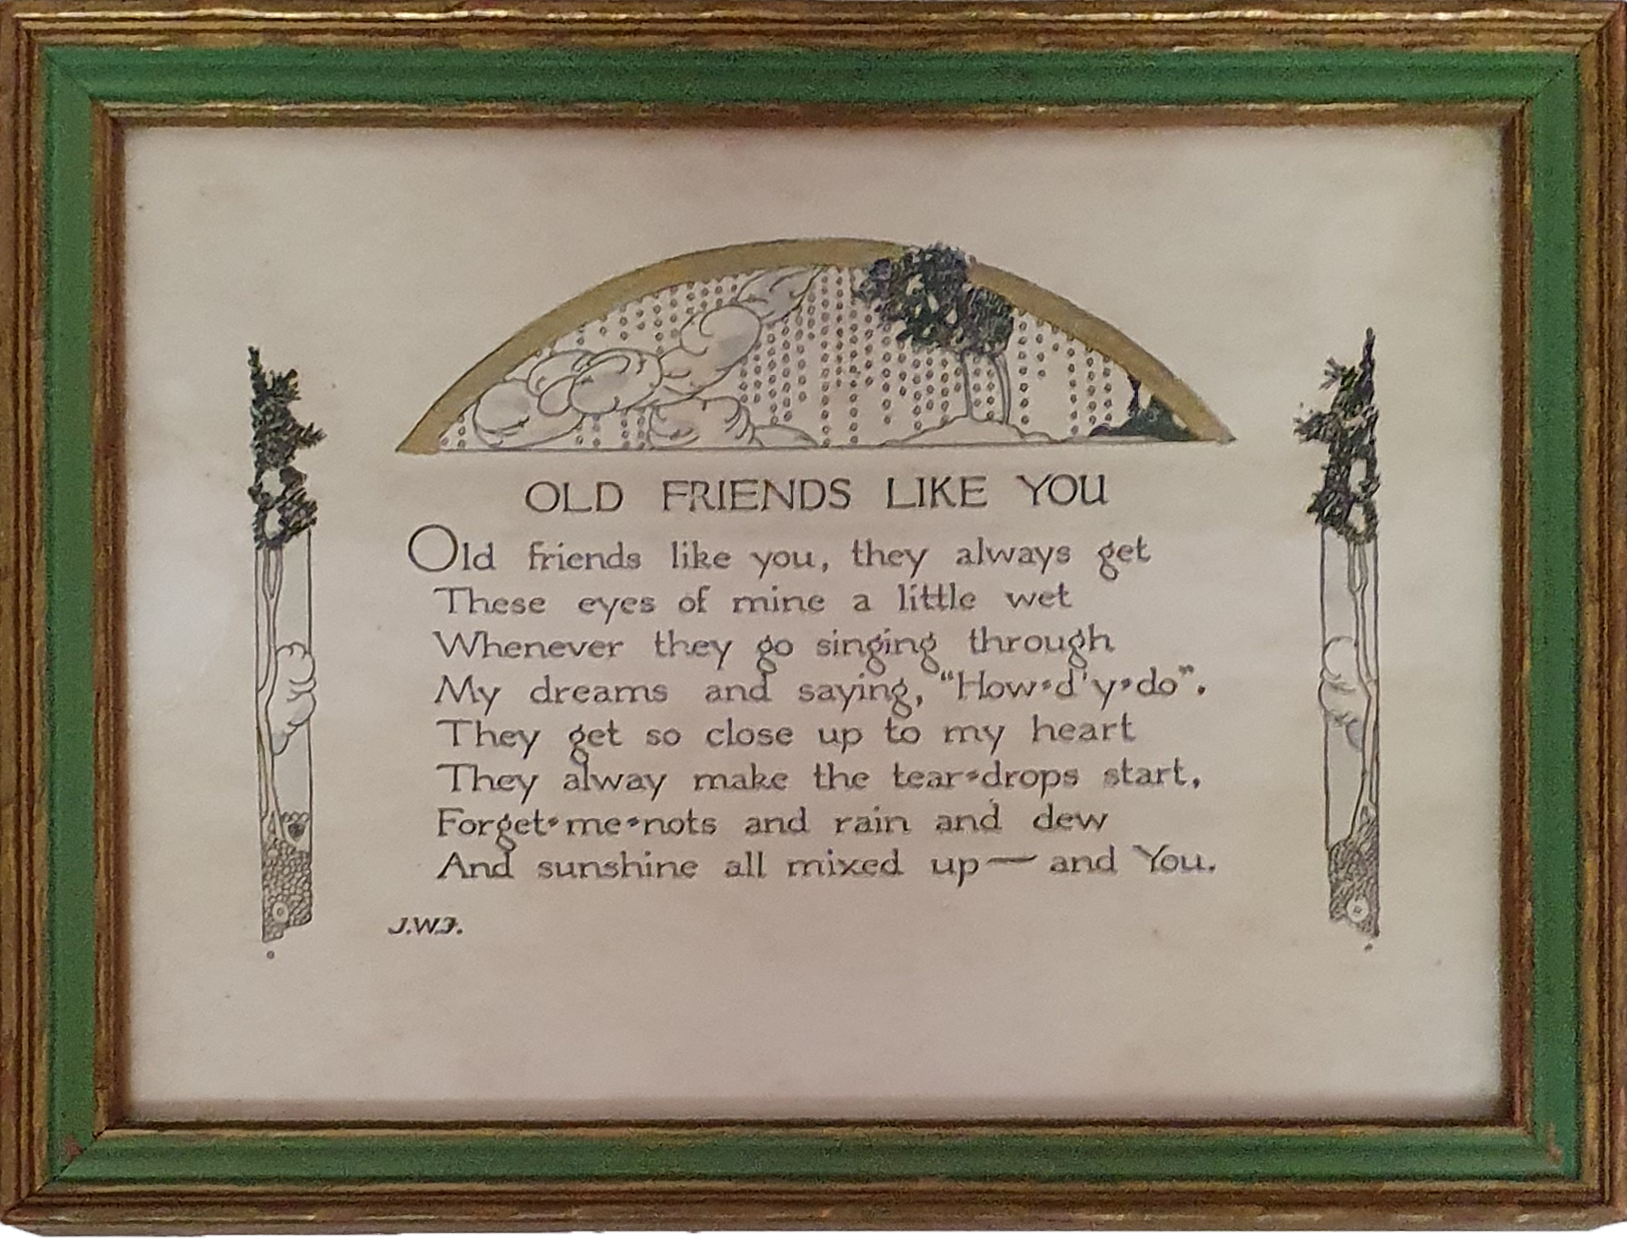 OLD FRIENDS LIKE YOU
Old friends like you, they always get
These eyes of mine a little wet
Whenever they go singing through
My dreams and saying, "How-d'y-do".
They get so close up to my heart
They alway make the tear-drops start,
Forget-me-nots and rain and dew
And sunshine all mixed up — and You.
J.W.F.